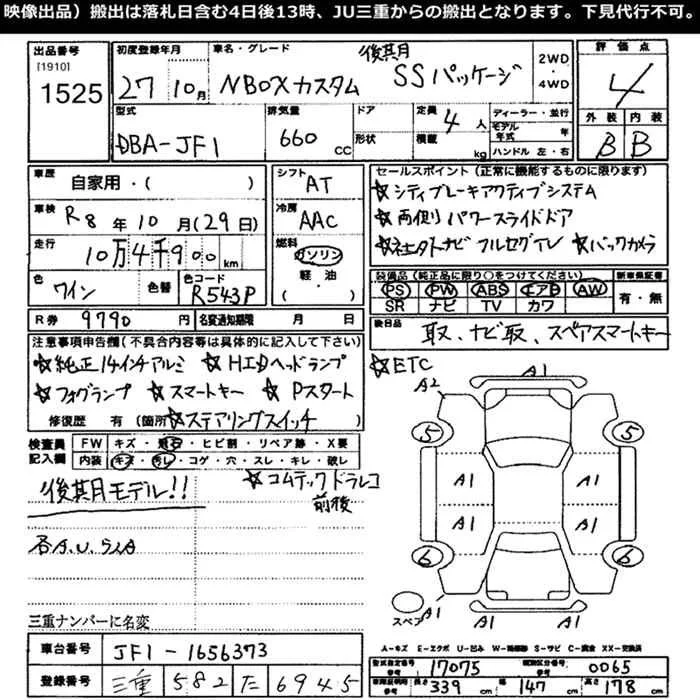 映像出品）搬出は落札日含む4日後13時、JU三重からの搬出となります。下見代行不可。
出品番号
[1910]
1525
初度登録年月
27 10月
車名・グレード
NBOXカスタム 後期 SSパッケージ
2WD
・
4WD
評価点
4
型式
DBA-JF1
排気量
660 cc
ドア
形状
定員
4 人
積載
kg
ディーラー・並行
モデル年式 年
ハンドル 左・右
外装 内装
B B
車歴
自家用・( )
シフト
AT
セールスポイント（正常に機能するものに限ります）
☆シティブレーキアクティブシステム
☆両側パワースライドドア
ナビ フルセグTV ☆バックカメラ
車検
R8年10月(29日)
冷房
AAC
走行
10万4千900km
燃料
ガソリン
軽・油
( )
色
ワイン
色替
色コード
R543P
装備品（純正品に限り○をつけてください）
PS PW ABS エアB AW
SR ナビ TV カワ
新車保証書
有・無
R券 9790 円
名変通知期限 月 日
後日品
取、ナビ取、スペアスマートキー
注意事項申告欄（不具合内容等は具体的に記入して下さい）
☆純正14インチアルミ ☆HIDヘッドランプ
☆フォグランプ ☆スマートキー ☆Pスタート
修復歴 有（箇所 ☆ステアリングスイッチ
☆ETC
検査員記入欄
FW キズ・飛石・ヒビ割・リペア跡・X要
内装 キズ・汚れ・コゲ・穴・スレ・キレ・破レ
後期モデル!! ☆コムテックドラレコ
前後
各A.U.
三重ナンバーに名変
車台番号 JF1-1656373
登録番号 三重 582 た 6945
A1
A2
5 5
A1 A1
A1 A1
6 6
スペア
A1 A1
A-キズ E-エクボ U-凹ミ W-補修跡 S-サビ C-腐食 XX-交換済
型式指定番号 17075 類別区分番号 0065
長さ 339 cm 幅 147 cm 高さ 178 cm